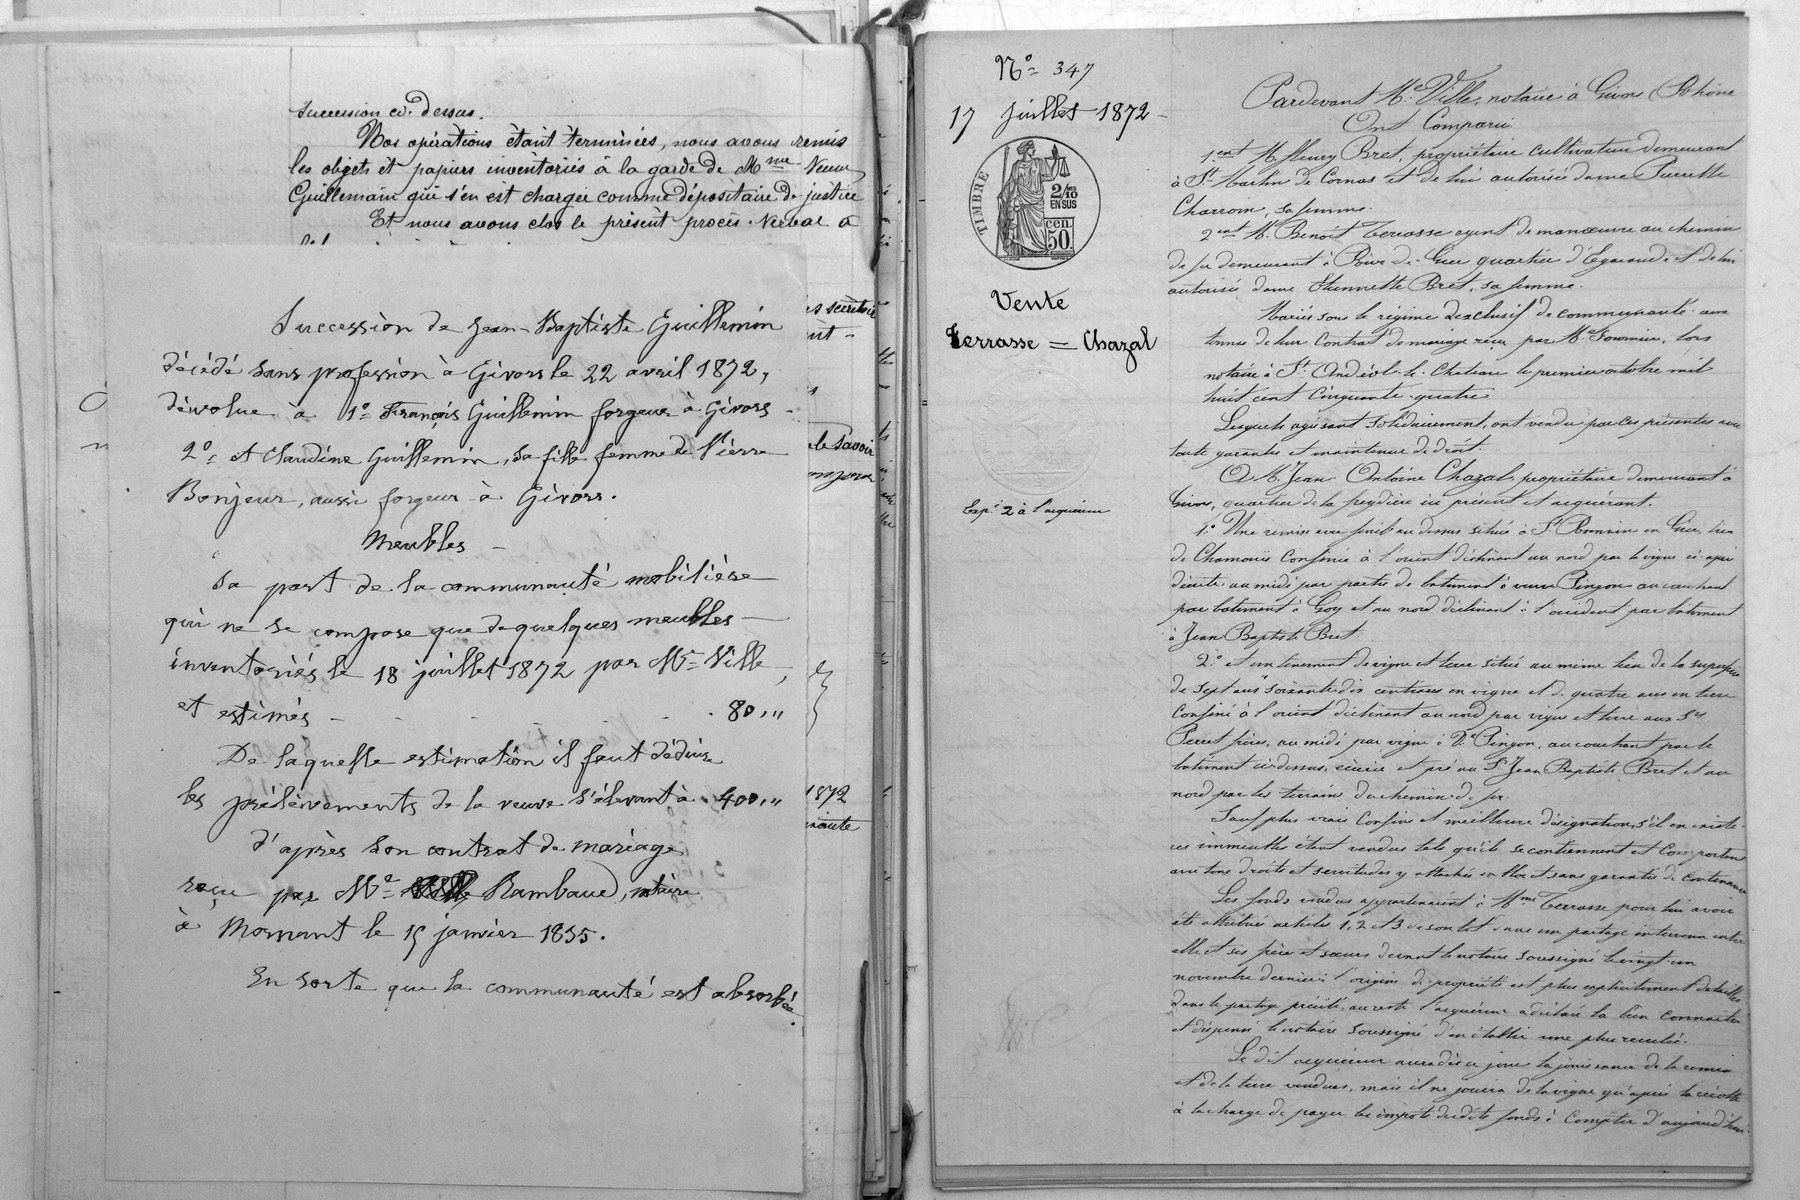 Succession ci-dessus.
Nos opérations étant terminées, nous avons remis
les objets et papiers inventoriés à la garde de Mme Veuve
Guillemain qui s'en est chargée comme dépositaire de justice
Et nous avons clos le présent procès-verbal à
Succession de Jean-Baptiste Guillemin
décédé sans profession à Givors le 22 avril 1872,
dévolue à 1º François Guillemin forgeur à Givors
2º et Claudine Guillemin, sa fille femme de Pierre
Bonjeur, aussi forgeur à Givors.
Meubles
Sa part de la communauté mobilière
qui ne se compose que de quelques meubles
inventoriés le 18 juillet 1872 par Me Ville,
et estimés - 80,"
De laquelle estimation il faut déduire
les prélèvements de la veuve s'élevant à 400,"
d'après son contrat de mariage
reçu par Me Rambaud, notaire
à Mornant le 15 janvier 1835.
En sorte que la communauté est absorbée.
1872
Nº 347
17 Juillet 1872
TIMBRE
2/10
EN SUS
cen.
50.
Vente
Terrasse = Chazal
Exp. 2 à l'acquéreur
Pardevant Me Ville, notaire à Givors (Rhône
Ont Comparu
1ent M. fleury Bret, propriétaire cultivateur demeurant
à St Martin de Cornas et de lui autorisée dame Pierrette
Charroin, sa femme.
2ent Mr Benoît Terrasse agent de manœuvre au chemin
de fer demeurant à Rive de Gier quartier d'Egarande et de lui
autorisée dame Etiennette Bret, sa femme.
Mariés sous le régime exclusif de communauté aux
termes de leur Contrat de mariage reçu par Me Fournier, lors
notaire à St Andéol-le-Château le premier octobre mil
huit cent Cinquante-quatre
Lesquels agissant solidairement, ont vendu par ces présentes avec
toute garantie et maintenue de droit.
A M. Jean Antoine Chazal, propriétaire demeurant à
Givors, quartier de la freydière ici présent et acquérant.
1º Une remise avec fenil au dessus située à St Romain en Gier, lieu
de Chamouïs Confinée à l'orient déclinant au nord par la vigne ci-après
décrite, au midi par partie de bâtiment à veuve Pinjon au couchant
par bâtiment à Goy et au nord déclinant à l'occident par bâtiment
à Jean Baptiste Bret.
2º et un tenement de vigne et terre situé au même lieu de la superficie
de sept ares soixante dix centiares en vigne et de quatre ares en terre
Confiné à l'orient déclinant au nord par vigne et terre aux Srs
Perret frères, au midi par vigne à Ve Pinjon, au couchant par le
bâtiment ci-dessus, écurie et pré au Sr Jean Baptiste Bret et au
nord par les terrains du chemin de fer.
Sauf plus vrais Confins et meilleure désignation, s'il en existe
ces immeubles étant vendus tels qu'ils se contiennent et Comportent
avec tous droits et servitudes y attachés en bloc et sans garantie de Contenance
Les fonds vendus appartenaient à Mme Terrasse pour lui avoir
été attribués articles 1, 2 et 3 de son lot dans un partage intervenu entre
elle et ses frère et sœurs devant le notaire soussigné le vingt-un
novembre dernier; l'origine de propriété est plus explicitement détaillée
dans le partage précité, au reste l'acquéreur a déclaré la bien connaître
et dispensé le notaire soussigné d'en établir une plus reculée.
Le dit acquéreur aura dès ce jour la jouissance de la remise
et de la terre vendues, mais il ne jouira de la vigne qu'après la récolte
à la charge de payer les impôts desdits fonds à Compter d'aujourd'hui.